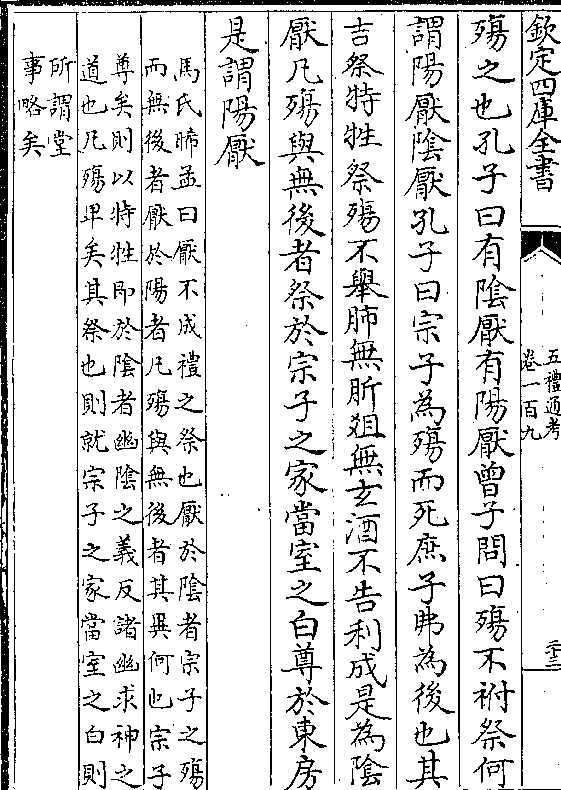 欽定四庫全書
五禮通考
卷一百九
二十三
殤之也孔子曰有陰厭有陽厭曾子問曰殤不祔祭何
謂陽厭陰厭孔子曰宗子為殤而死庶子弗為後也其
吉祭特牲祭殤不舉肺無肵俎無玄酒不告利成是為陰
厭凡殤與無後者祭於宗子之家當室之白尊於東房
是謂陽厭
馬氏晞孟曰厭不成禮之祭也厭於陰者宗子之殤
而無後者厭於陽者凡殤與無後者其異何也宗子
尊矣則以特牲即於陰者幽陰之義反諸幽求神之
道也凡殤卑矣其祭也則就宗子之家當室之白則
所謂堂
事略矣